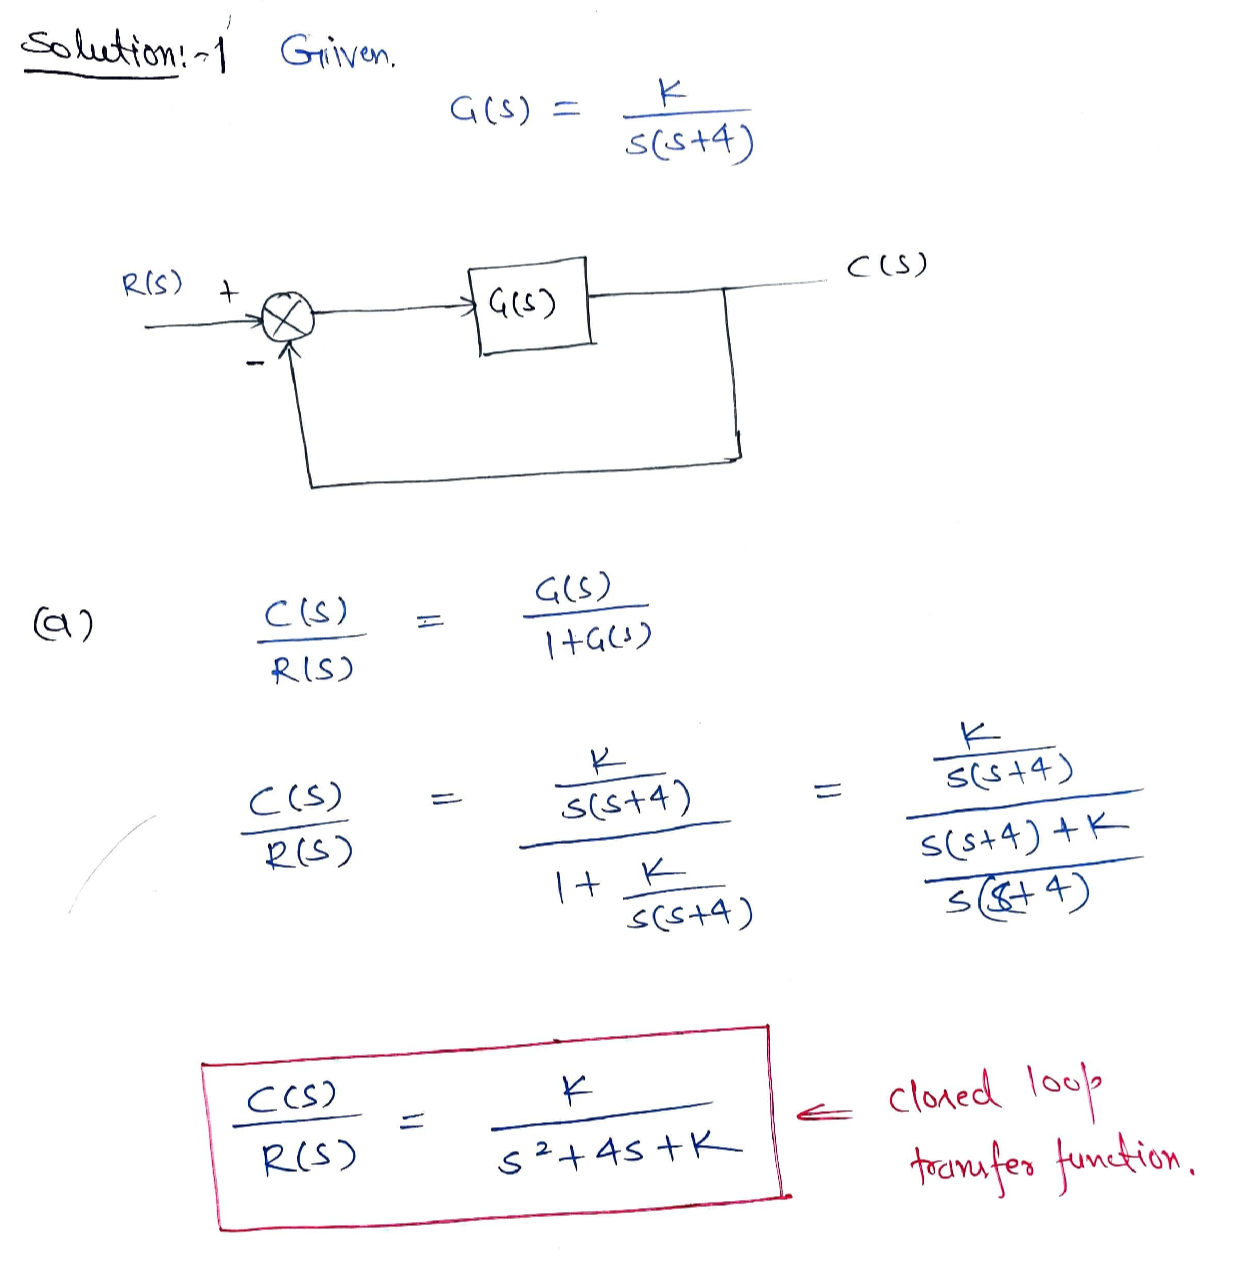 Solution:-1 Given.
G(s) = K / s(s+4)
R(s) + - G(s) C(s)
(a) C(s) / R(s) = G(s) / 1+G(s)
C(s) / R(s) = K / s(s+4) / 1+ K / s(s+4) = K / s(s+4) / s(s+4)+K / s(s+4)
C(s) / R(s) = K / s²+4s+K ⇐ closed loop
transfer function.